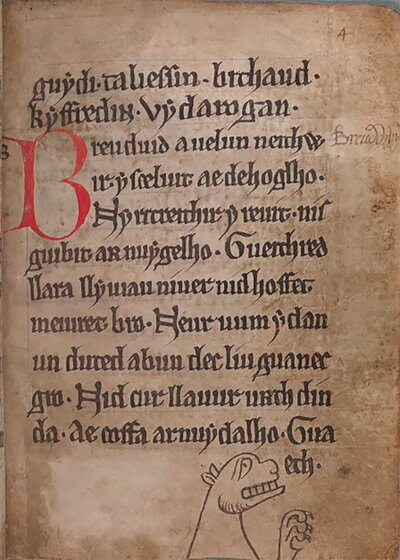 4
guẏdi. taliessin. bithaud.
kẏffredin. vẏ darogan.
Breuduid a uelun neithw
ir. ẏ sceluit ae dehoglho.
Nẏ ritreithir ẏ reuit. nis
guibit ar nuẏgelho. Gueithred
llara llẏuiau niuer nid hoffet
meuret bro. Neur uum ẏ dan
un duted a bun dec liu guanec
gro. Nid cur llauur urth din
da. Ae coffa ar nuẏ dalho. Gua
ech.